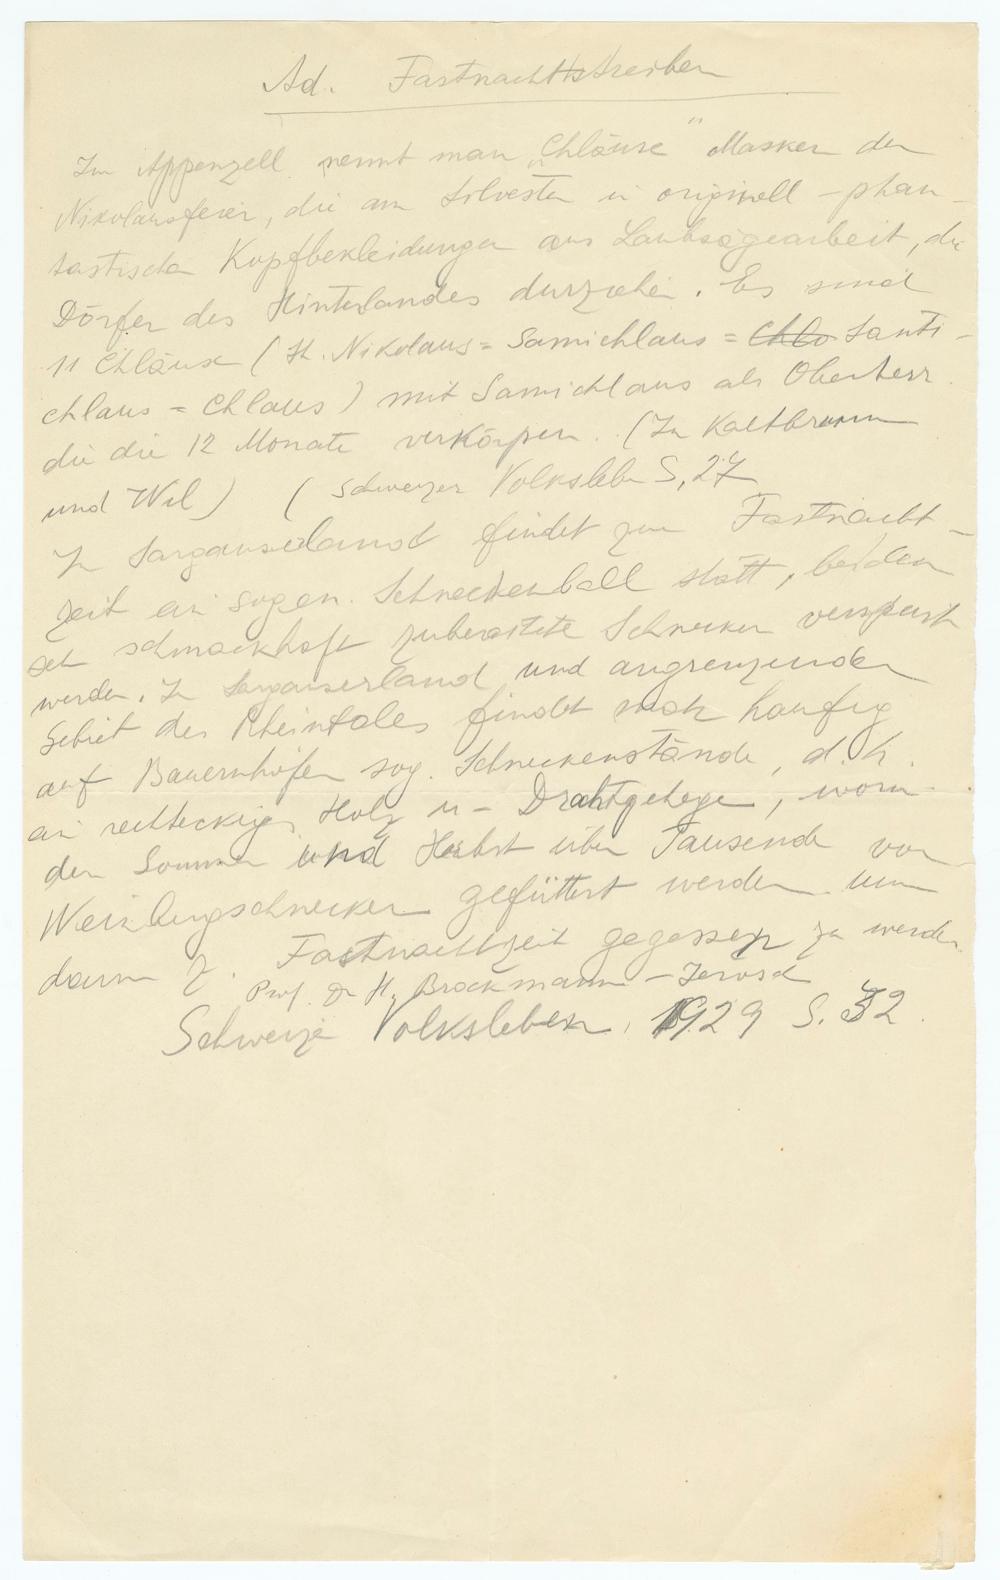 Ad. Fastnachtstreiben
Im Appenzell nennt man „Chläuse" Masken der
Nikolausfeier, die am Silvester in originell-phan-
tastischen Kopfbekleidungen aus Laubsägearbeit, die
Dörfer des Hinterlandes durziehen. Es sind
11 Chläuse (St. Nikolaus = Samichlaus = Chlo Santi-
chlaus = Chlaus) mit Samichlaus als Oberherr
die die 12 Monate verkörpern. (In Kaltbrunn
und Wil) (Schweizer Volksleben S. 27
In Sarganserland findet zur Fastnacht-
zeit ein sogen. Schneckenball statt, bei dem
schmackhaft zubereitete Schnecken verspeist
werden. In Sarganserland und angrenzenden
Gebiet des Rheintales findet man häufig
auf Bauernhöfen sog. Schneckenstände, d.h.
ein rechteckiges Holz u- Drahtgehege, worin
den Sommer und Herbst über Tausende von
Weinbergschnecken gefüttert werden um
dann z. Fastnachtzeit gegessen zu werden.
Prof. Dr H. Brockmann-Jerosch
Schweizer Volksleben. 1929 S. 32.